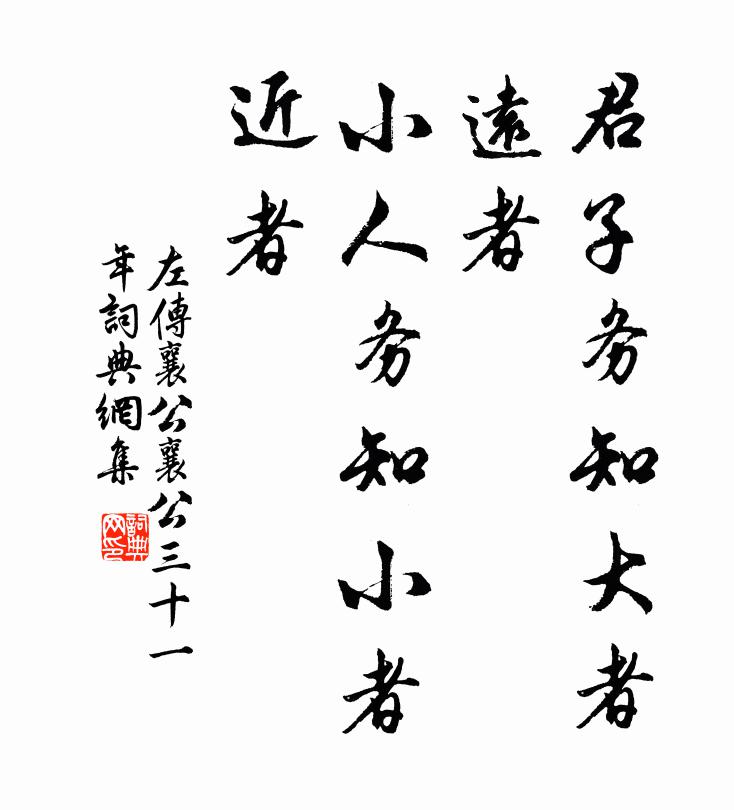 君子务知大者
遠者
小人务知小者
近者
左傳襄公襄公三十一
年詞典網集
詞典
网印